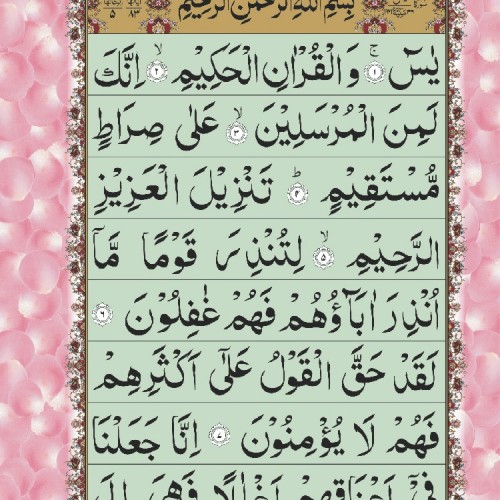 بِسْمِ اللهِ الرَّحْمٰنِ الرَّحِيْمِ
يٰسٓ ۚ﴿۱﴾ وَالْقُرْاٰنِ الْحَكِيْمِ ۙ﴿۲﴾ اِنَّكَ
لَمِنَ الْمُرْسَلِيْنَ ۙ﴿۳﴾ عَلٰى صِرَاطٍ
مُّسْتَقِيْمٍ ؕ﴿۴﴾ تَنْزِيْلَ الْعَزِيْزِ
الرَّحِيْمِ ۙ﴿۵﴾ لِتُنْذِرَ قَوْمًا مَّاۤ
اُنْذِرَ اٰبَآؤُهُمْ فَهُمْ غٰفِلُوْنَ ﴿۶﴾
لَقَدْ حَقَّ الْقَوْلُ عَلٰۤى اَكْثَرِهِمْ
فَهُمْ لَا يُؤْمِنُوْنَ ﴿۷﴾ اِنَّا جَعَلْنَا
فِيْۤ اَعْنَاقِهِمْ اَغْلٰلًا فَهِيَ اِلَى